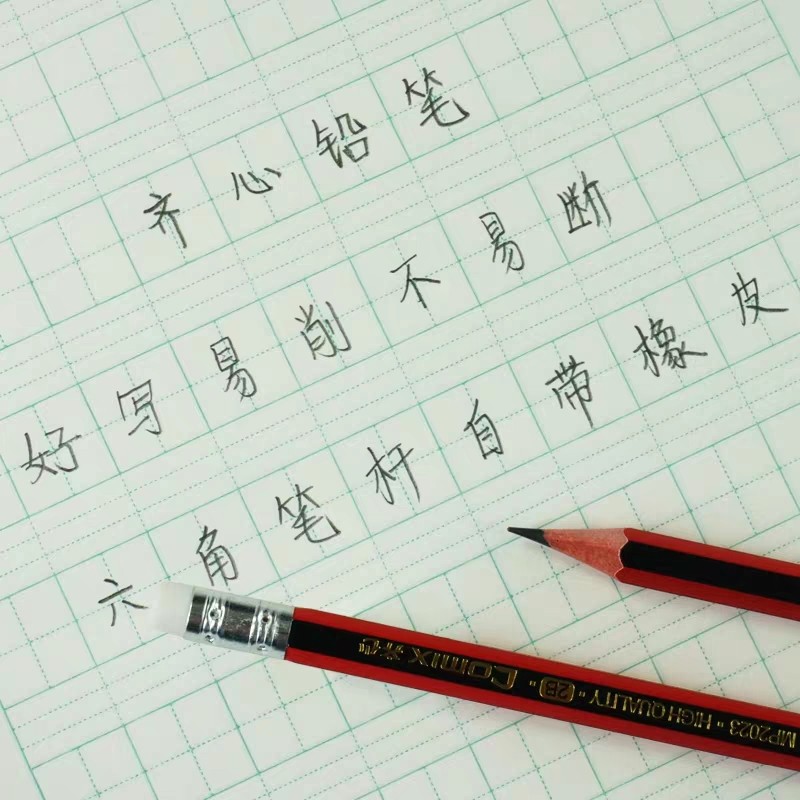 齐心铅笔
好写易削不易断
六角笔杆自带橡皮
MP2023 • HIGH QUALITY • 2B • comix 齐心